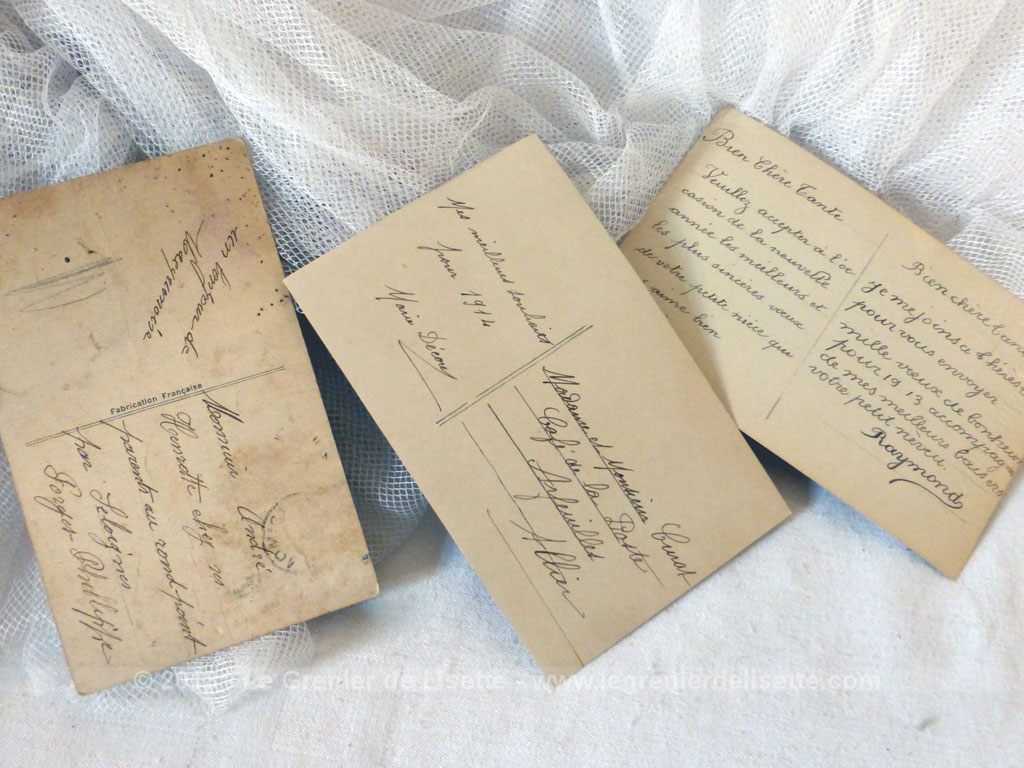 un bonjour de
Fabrication Française
Monsieur André
Henriette chez ses
parents au rond point
Mes
meilleurs souhaits
pour 1914
Marie Décour
Madame et Monsieur Curat
Café de la Poste
Arfeuilles
Allier
Bien Chère Tante
Veuillez accepter à l'oc
casion de la nouvelle
année les meilleurs et
les plus sincères vœux
de votre petite nièce qui
aime bien
Bien chère tan
Je me joins a thérès
pour vous envoyer
mille vœux de bonheur
pour 1913 accompag
de mes meilleurs baisers
votre petit neveu.
Raymond
Le Grenier de Lisette - www.legrenierdelisette.com